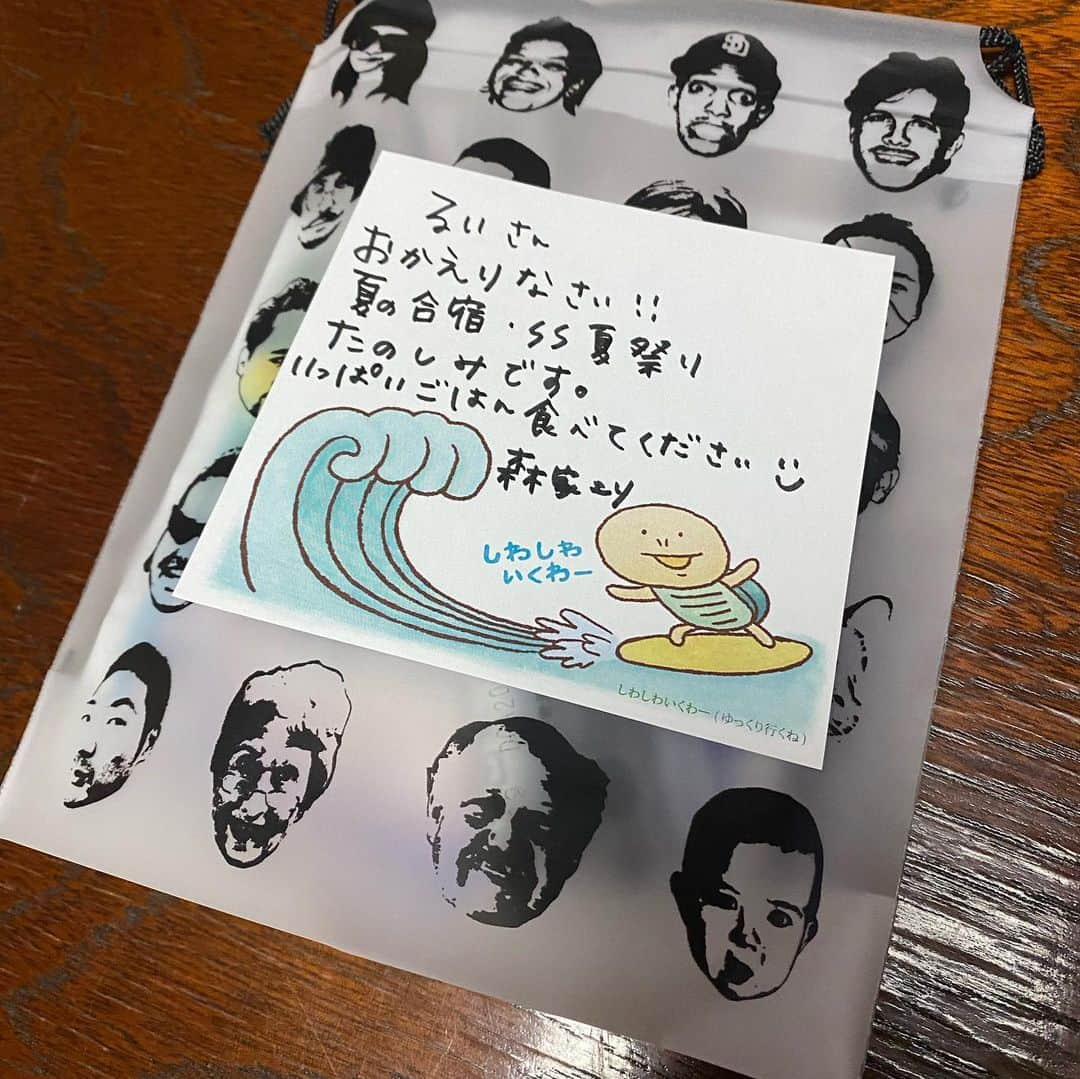 るいさん
おかえりなさい!!
夏の合宿・SS夏祭り
たのしみです。
いっぱいごはん食べてください
森家より
しわしわ
いくわー
しわしわいくわー(ゆっくり行くね)